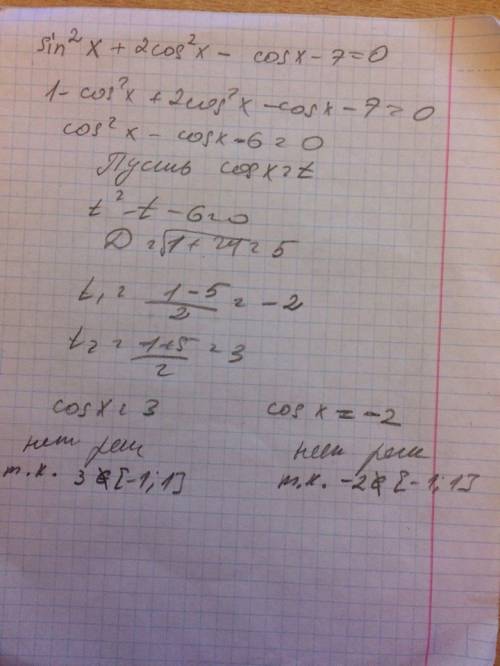 sin²x + 2cos²x - cosx - 7 = 0
1 - cos²x + 2cos²x - cosx - 7 = 0
cos²x - cosx - 6 = 0
Пусть cosx = t
t² - t - 6 = 0
D = √1 + 24 = 5
t₁ = (1-5)/2 = -2
t₂ = (1+5)/2 = 3
cosx = 3 cosx = -2
нет реш нет реш
т.к. 3 ∉ [-1; 1] т.к. -2 ∉ [-1; 1]